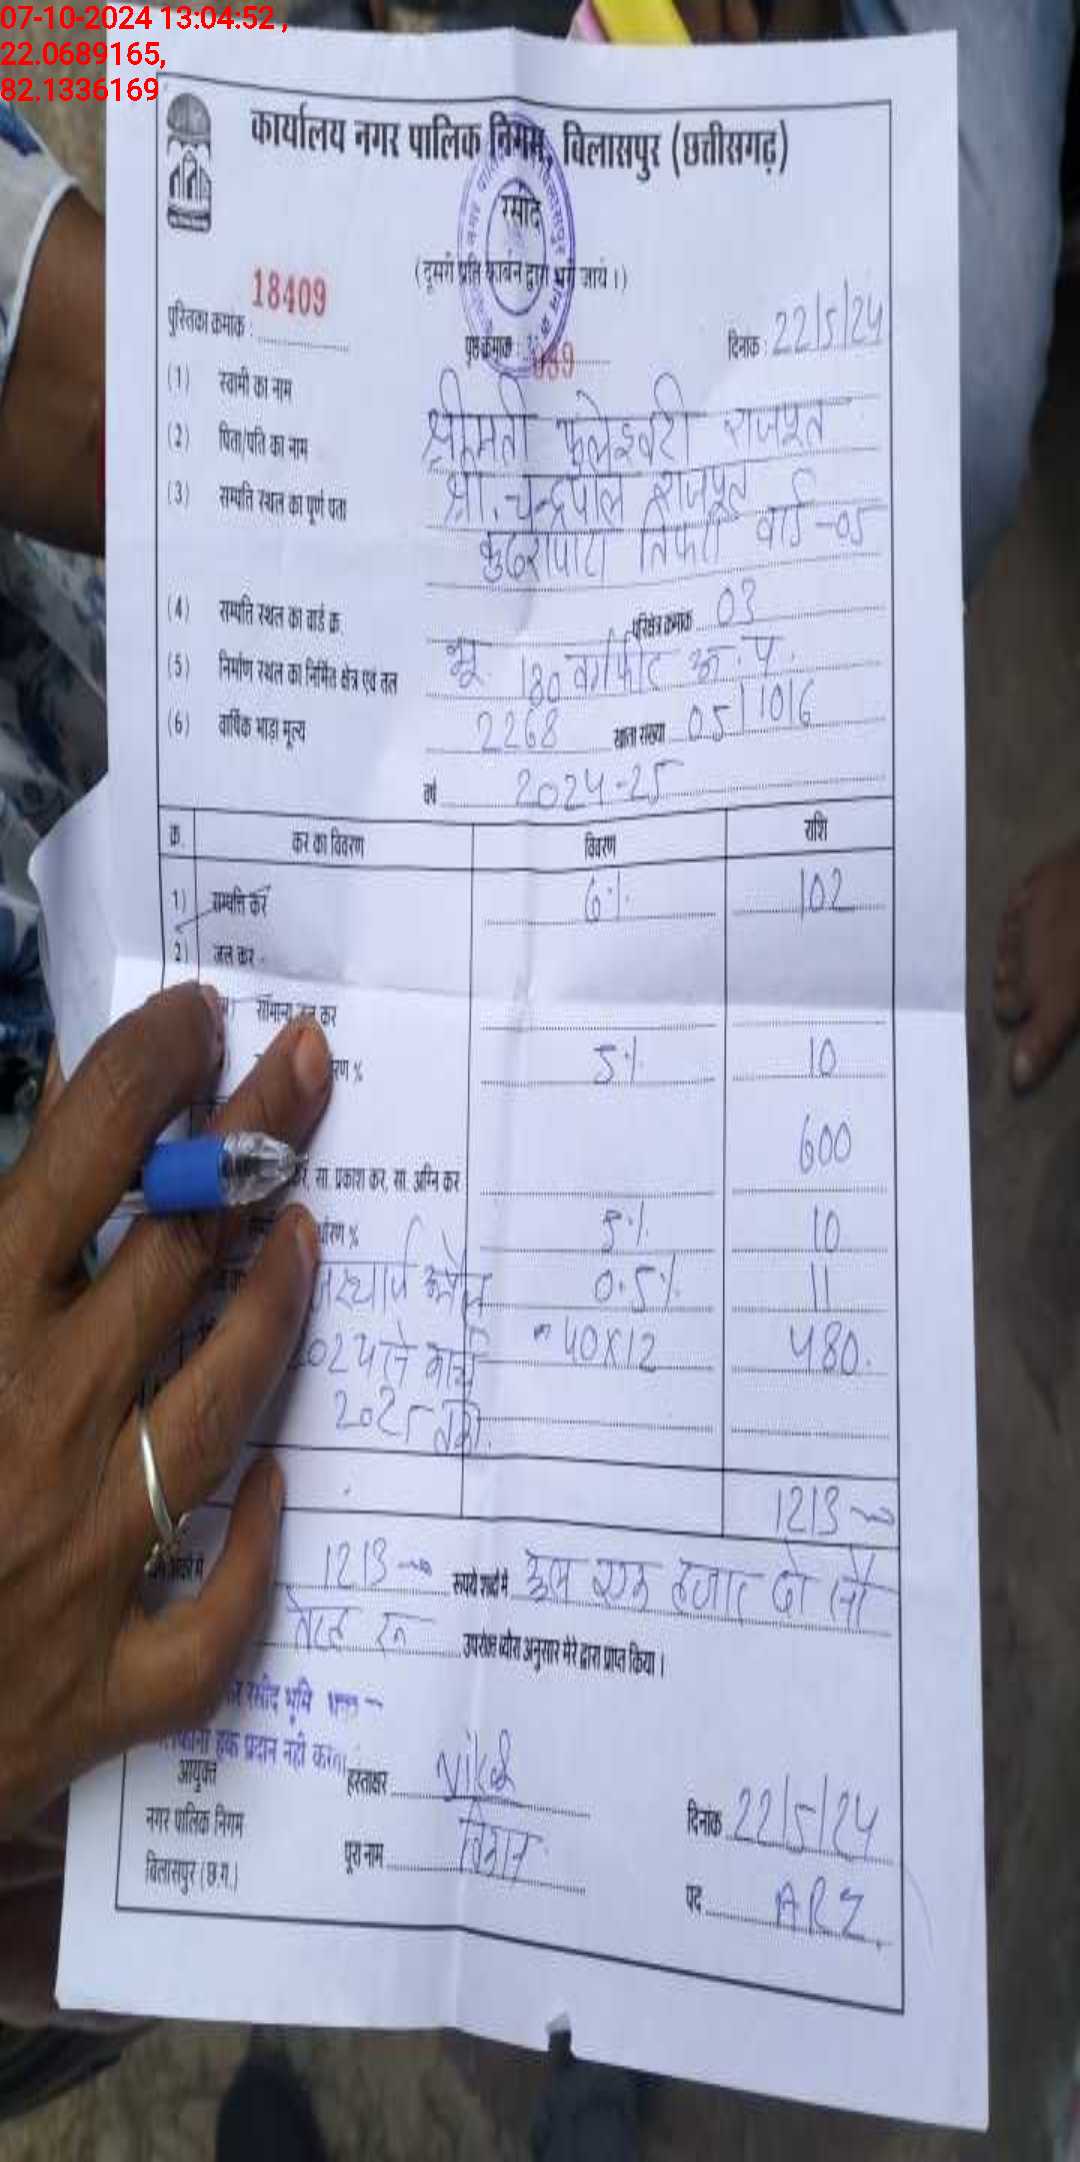 07-10-2024 13:04:52 ,
22.0689165,
82.1336169
कार्यालय नगर पालिक निगम, बिलासपुर (छत्तीसगढ़)
रसीद
(दूसरी प्रति कार्बन द्वारा भरी जाये।)
पुस्तिका क्रमांक : 18409 पृष्ठ क्रमांक : 059 दिनांक : 22/5/24
(1) स्वामी का नाम श्रीमती फुलेश्वरी राजपूत
(2) पिता/पति का नाम श्री. चन्द्रपाल राजपूत
(3) सम्पति स्थल का पूर्ण पता कुदरापारा तिफरा वार्ड-05
(4) सम्पति स्थल का वार्ड क्र. परिक्षेत्र क्रमांक 03
(5) निर्माण स्थल का निर्मित क्षेत्र एवं तल भू. 180 वर्गफीट आ. प.
(6) वार्षिक भाड़ा मूल्य 2268 खाता संख्या 05/1016
वर्ष 2024-25
क्र. कर का विवरण विवरण राशि
1) सम्पत्ति कर 6% 102
2) जल कर
सामान्य जल कर
% 5% 10
600
कर, सा. प्रकाश कर, सा. अग्नि कर
% 5% 10
0.5% 11
2024 से मार्च 40X12 480.
2025 तक
1213
1213 रूपये शब्दों में कुल एक हजार दो सौ
तेरह रू उपरोक्त ब्यौरा अनुसार मेरे द्वारा प्राप्त किया।
रसीद भूमि
हक प्रदान नहीं करता
आयुक्त हस्ताक्षर
नगर पालिक निगम दिनांक 22/5/24
बिलासपुर (छ.ग.) पूरा नाम
पद ARI